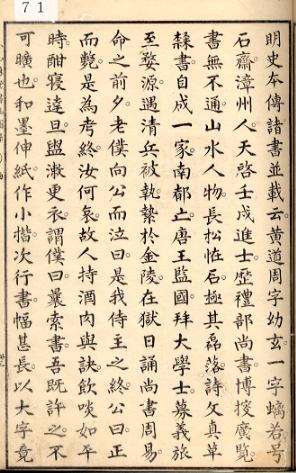 71
明史本傳諸書並載云黄道周字幼玄一字螭若号
石齋漳州人天啓壬戌進士歷禮部尚書博授廣覧
書無不通山水人物長松恠石極其磊落詩文真草
隸書自成一家南都亡唐王監國拜大學士募義旅
至婺源遇清兵被執縶於金陵在獄日誦尚書周易
命之前夕老僕向公而泣曰是我侍主之終公曰正
而斃是為考終汝何哀故人持酒肉與訣飲啖如午
時酣寝達旦盥漱更衣謂僕曰曩索書吾既許之不
可曠也和墨伸紙作小楷次行書幅甚長以大字竟